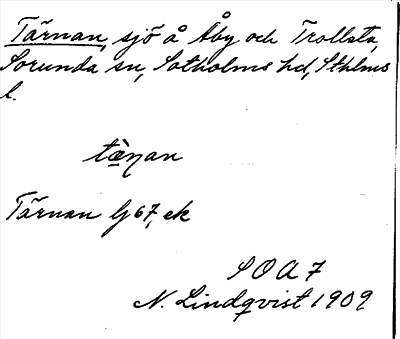 Tärnan, sjö å Åby och Trollsta,
Sorunda sn, Sotholms hd, Sthlms
l.
tä̀ṇan
Tärnan lj 67, ek
S O A 7
N. Lindqvist 1909